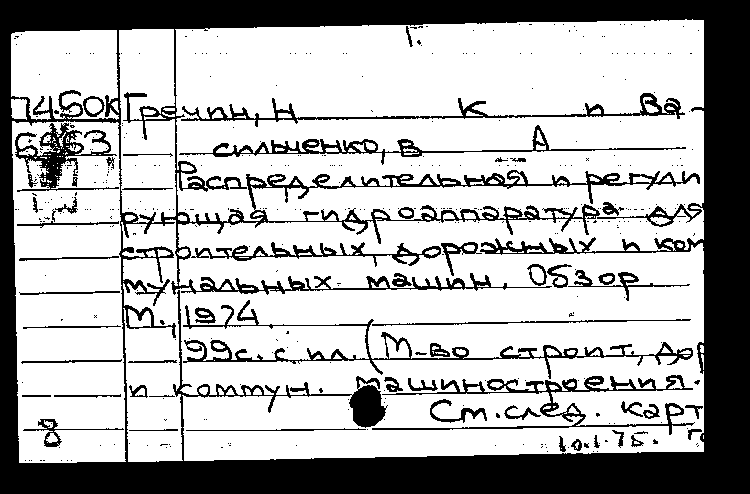 Г.
П4.50К Гречин, Н К и Ва-
5963 сильченко, В А
Распределительная и регули
рующая гидроаппаратура для
строительных, дорожных и ком
мунальных машин. Обзор.
М., 1974.
99с. с ил. (М-во строит., дор
и коммун. машиностроения.
См. след. карт
8 10.1.75.